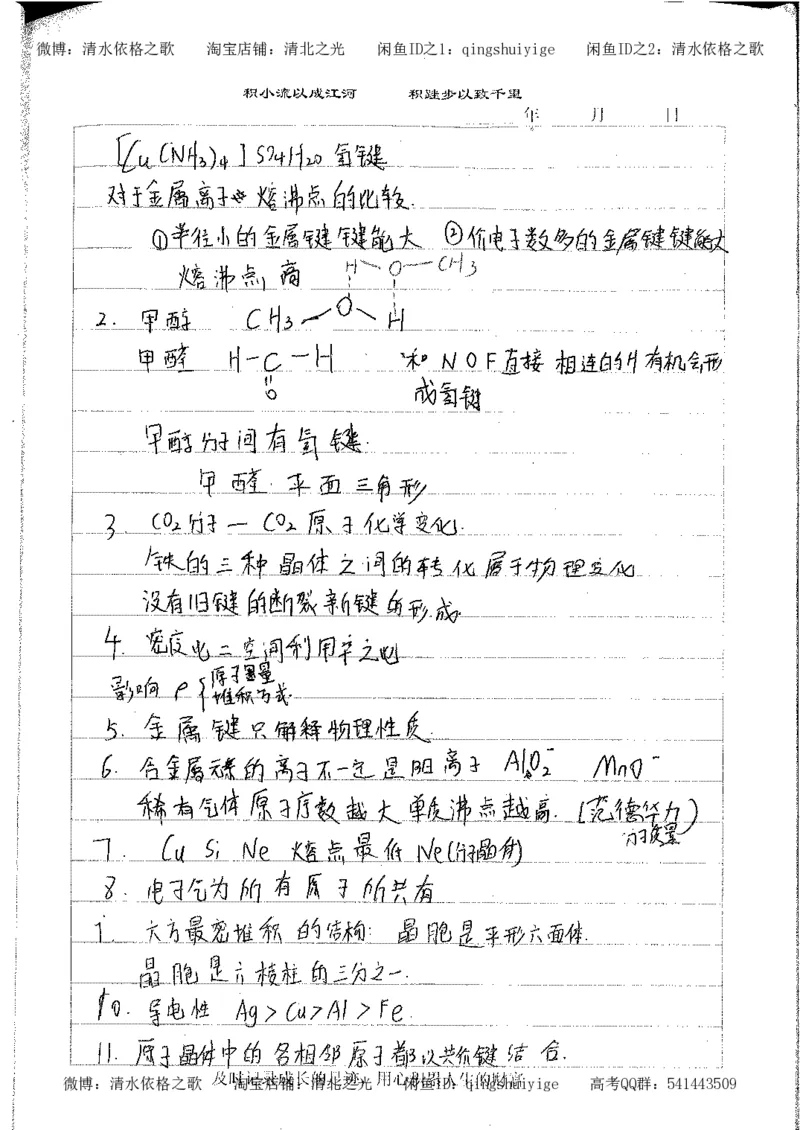 微博：清水依格之歌 淘宝店铺：清北之光 闲鱼ID之1：qingshuiyige 闲鱼ID之2：清水依格之歌
积小流以成江河 积跬步以致千里
年 月 日
[Cu(NH3)4]SO4H2O 氢键
对于金属离子 熔沸点的比较.
①半径小的金属键键能大 ②价电子数多的金属键键能大
熔沸点高
H O—CH3
2. 甲醇 CH3 O H
甲醛 H-C-H 和 N O F 直接 相连的H 有机会形
O 成氢键
甲醇分子间有氢键.
甲醛. 平面三角形
3. CO2分子— CO2原子化学变化.
铁的三种晶体之间的转化属于物理变化
没有旧键的断裂新键的形成
4. 密度 二空间利用率之
影响 ρ { 原子质量
堆积方式.
5. 金属键只解释物理性质.
6. 含金属元素的离子不一定是阳离子 AlO2⁻ MnO⁻
稀有气体原子序数越大 单质沸点越高. (范德华力)
分子质量
7. Cu Si Ne 熔点最低 Ne(分子晶体)
8. 电子气为所有原子所共有
9. 六方最密堆积的结构: 晶胞是平形六面体.
晶胞是六棱柱的三分之一.
10. 导电性 Ag>Cu>Al>Fe.
11. 原子晶体中的各相邻原子都以共价键结合.
及时记录成长的足迹，用心
微博：清水依格之歌 淘宝店铺：清北之光 闲鱼ID之1：qingshuiyige 高考QQ群：541443509